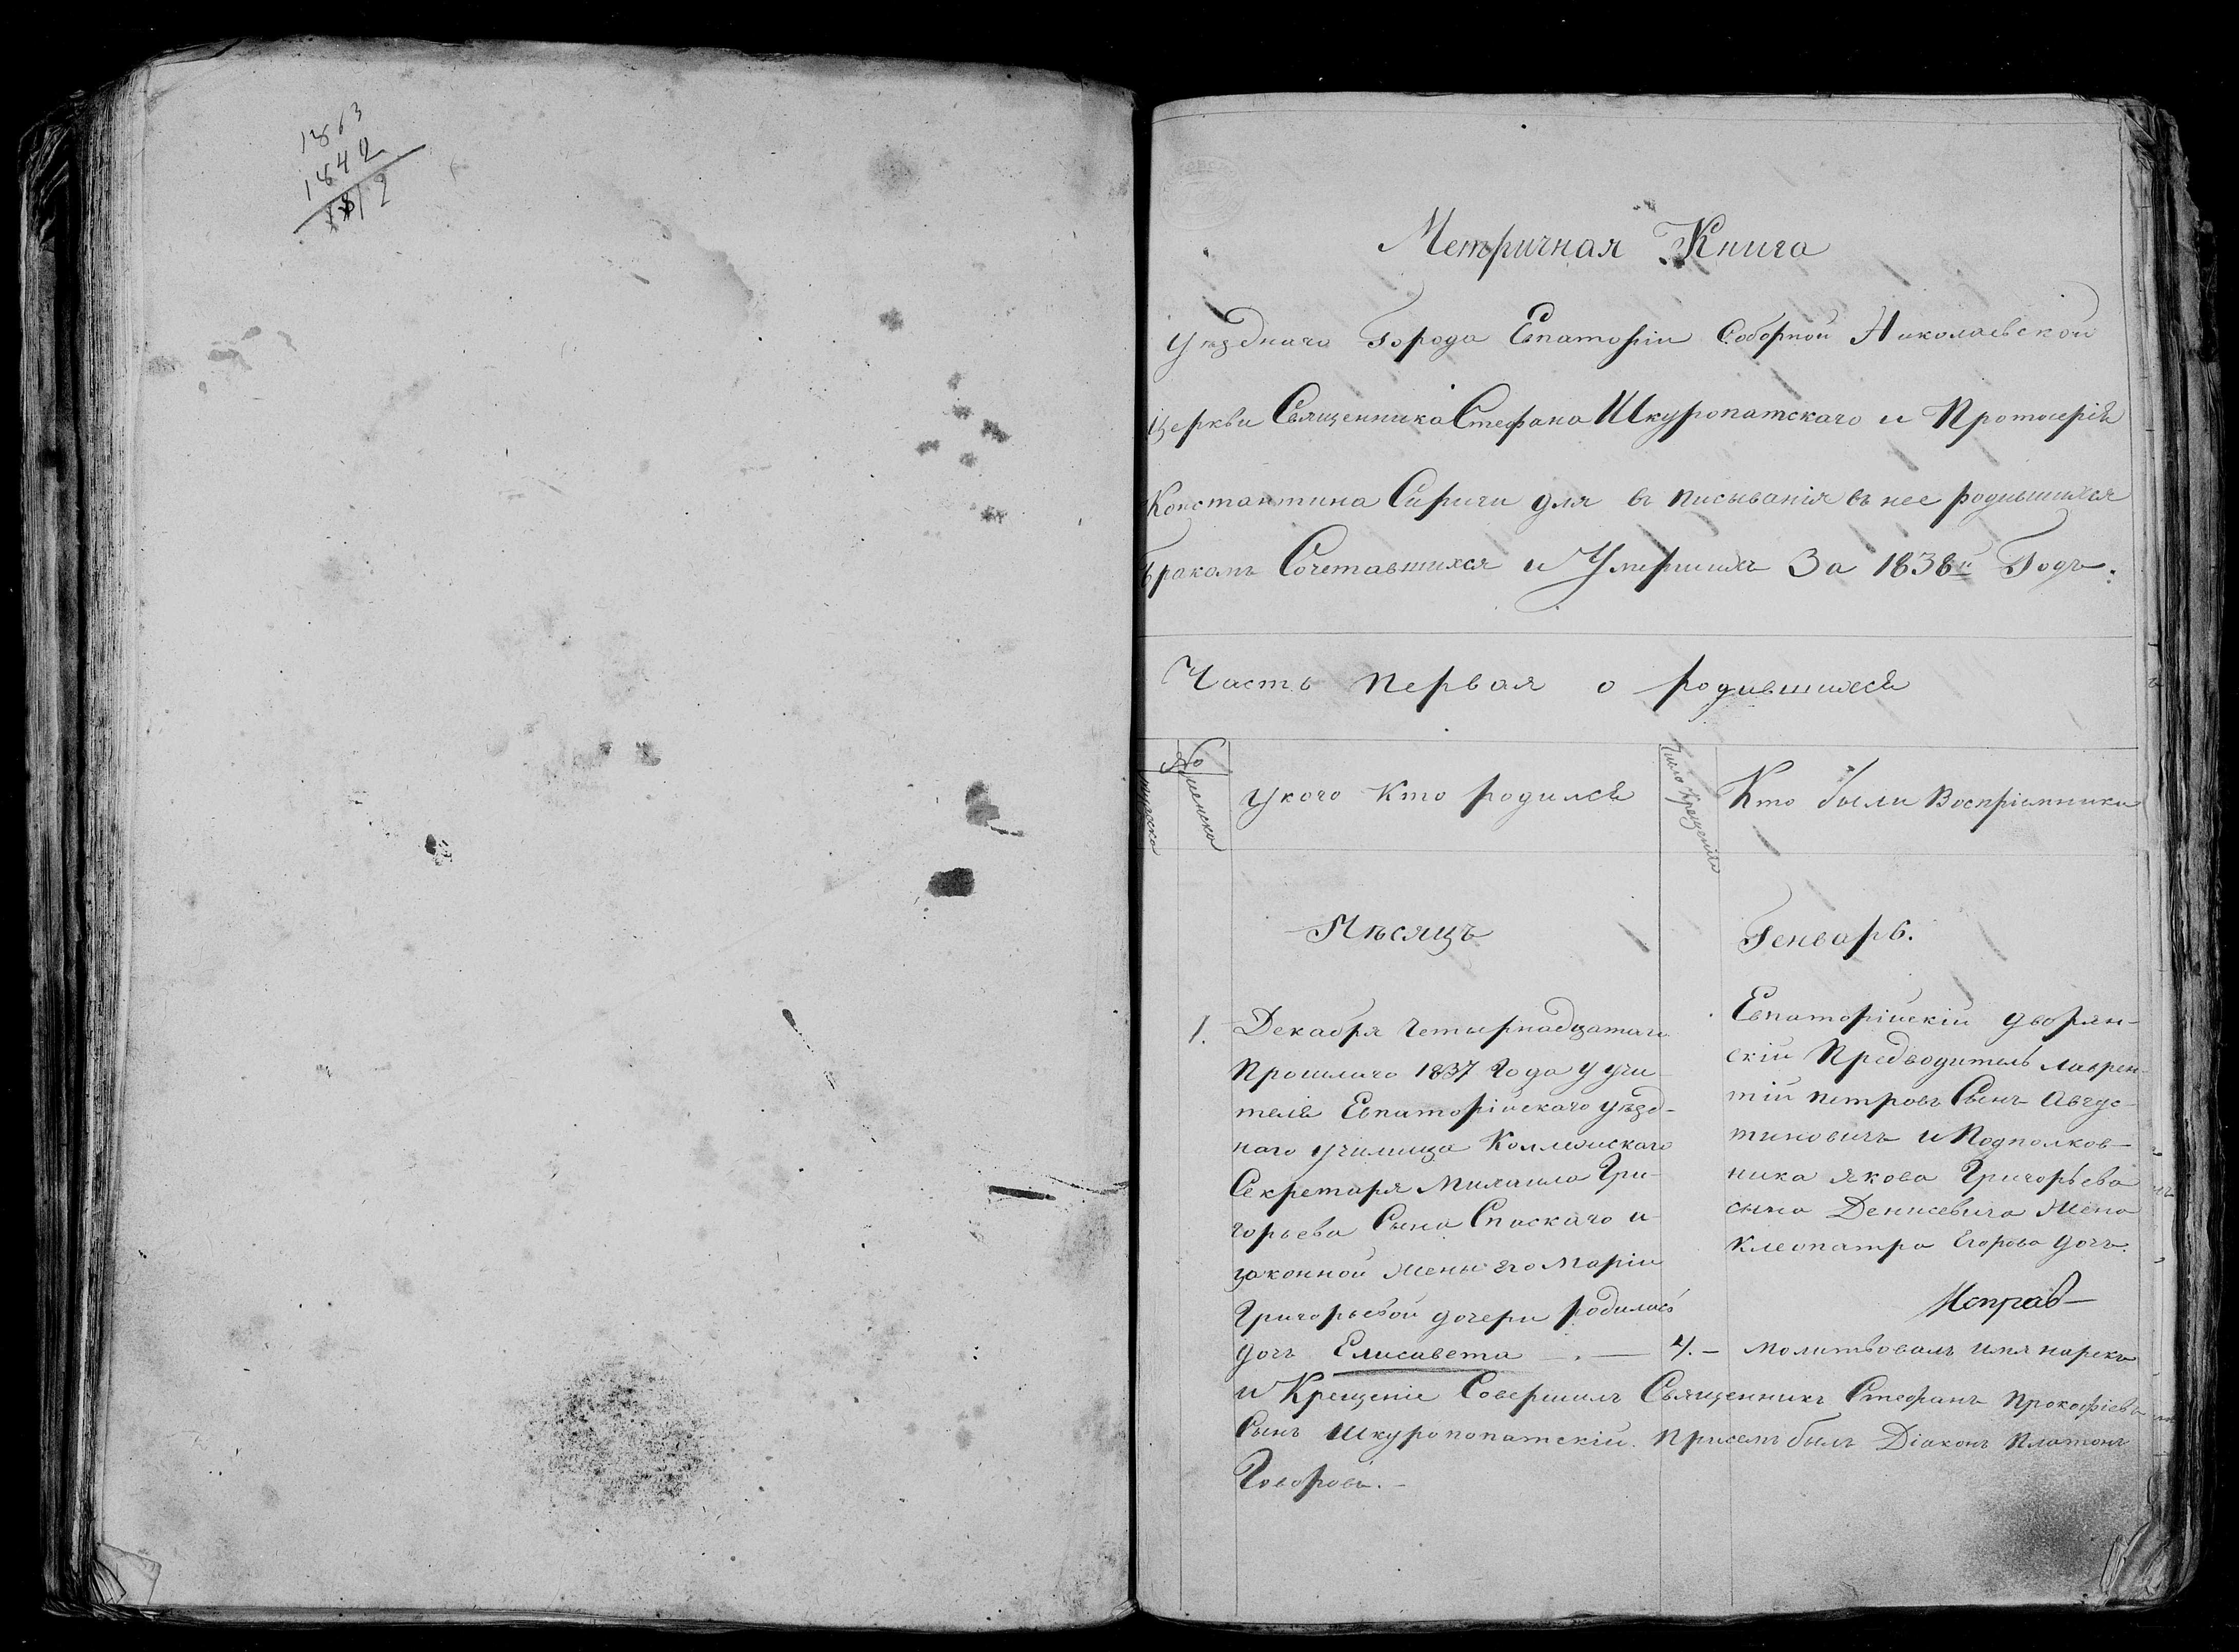 1863
1842
1812
Метричная Книга
уѣзднаго Города Евпаторіи Соборной Николаевской
Церкви Священника Стефана Шкуропатскаго и Протоіерѣя
Константина Сиричи для въ писыванія въ нее родившихся
Бракомъ Сочетавшихся и Умершихъ За 1838й Годъ.
Часть первая о родившихся
№
мужеска
женска
у кого кто родился
Число крещенія
Кто были Воспріемники
Мѣсяцъ
Генварь.
1.
Декабря Четырнадцатаго
Прошлаго 1837 Года у учи-
теля Евпаторійскаго уѣзд-
наго училища Коллежскаго
Секретаря Михаила Гри-
горьева Сына Спаскаго и
законной жены его Маріи
Григорьевой дочери родилась
дочь Елисавета
Евпаторійскій дворян-
скій Предводитель Лаврен-
тій Петровъ Сынъ Авгус-
тиновичъ и Подполков-
ника Якова Григорьева
сына Денисевича Жена
Клеопатра Егорова дочь.
Исправ-
4. — молитвовалъ имя нарекъ
и Крещеніе Совершилъ Священникъ Стефанъ Прокофіевъ
Сынъ Шкуропопатскій. Присемъ былъ Діаконъ Платонъ
Говоровъ. —